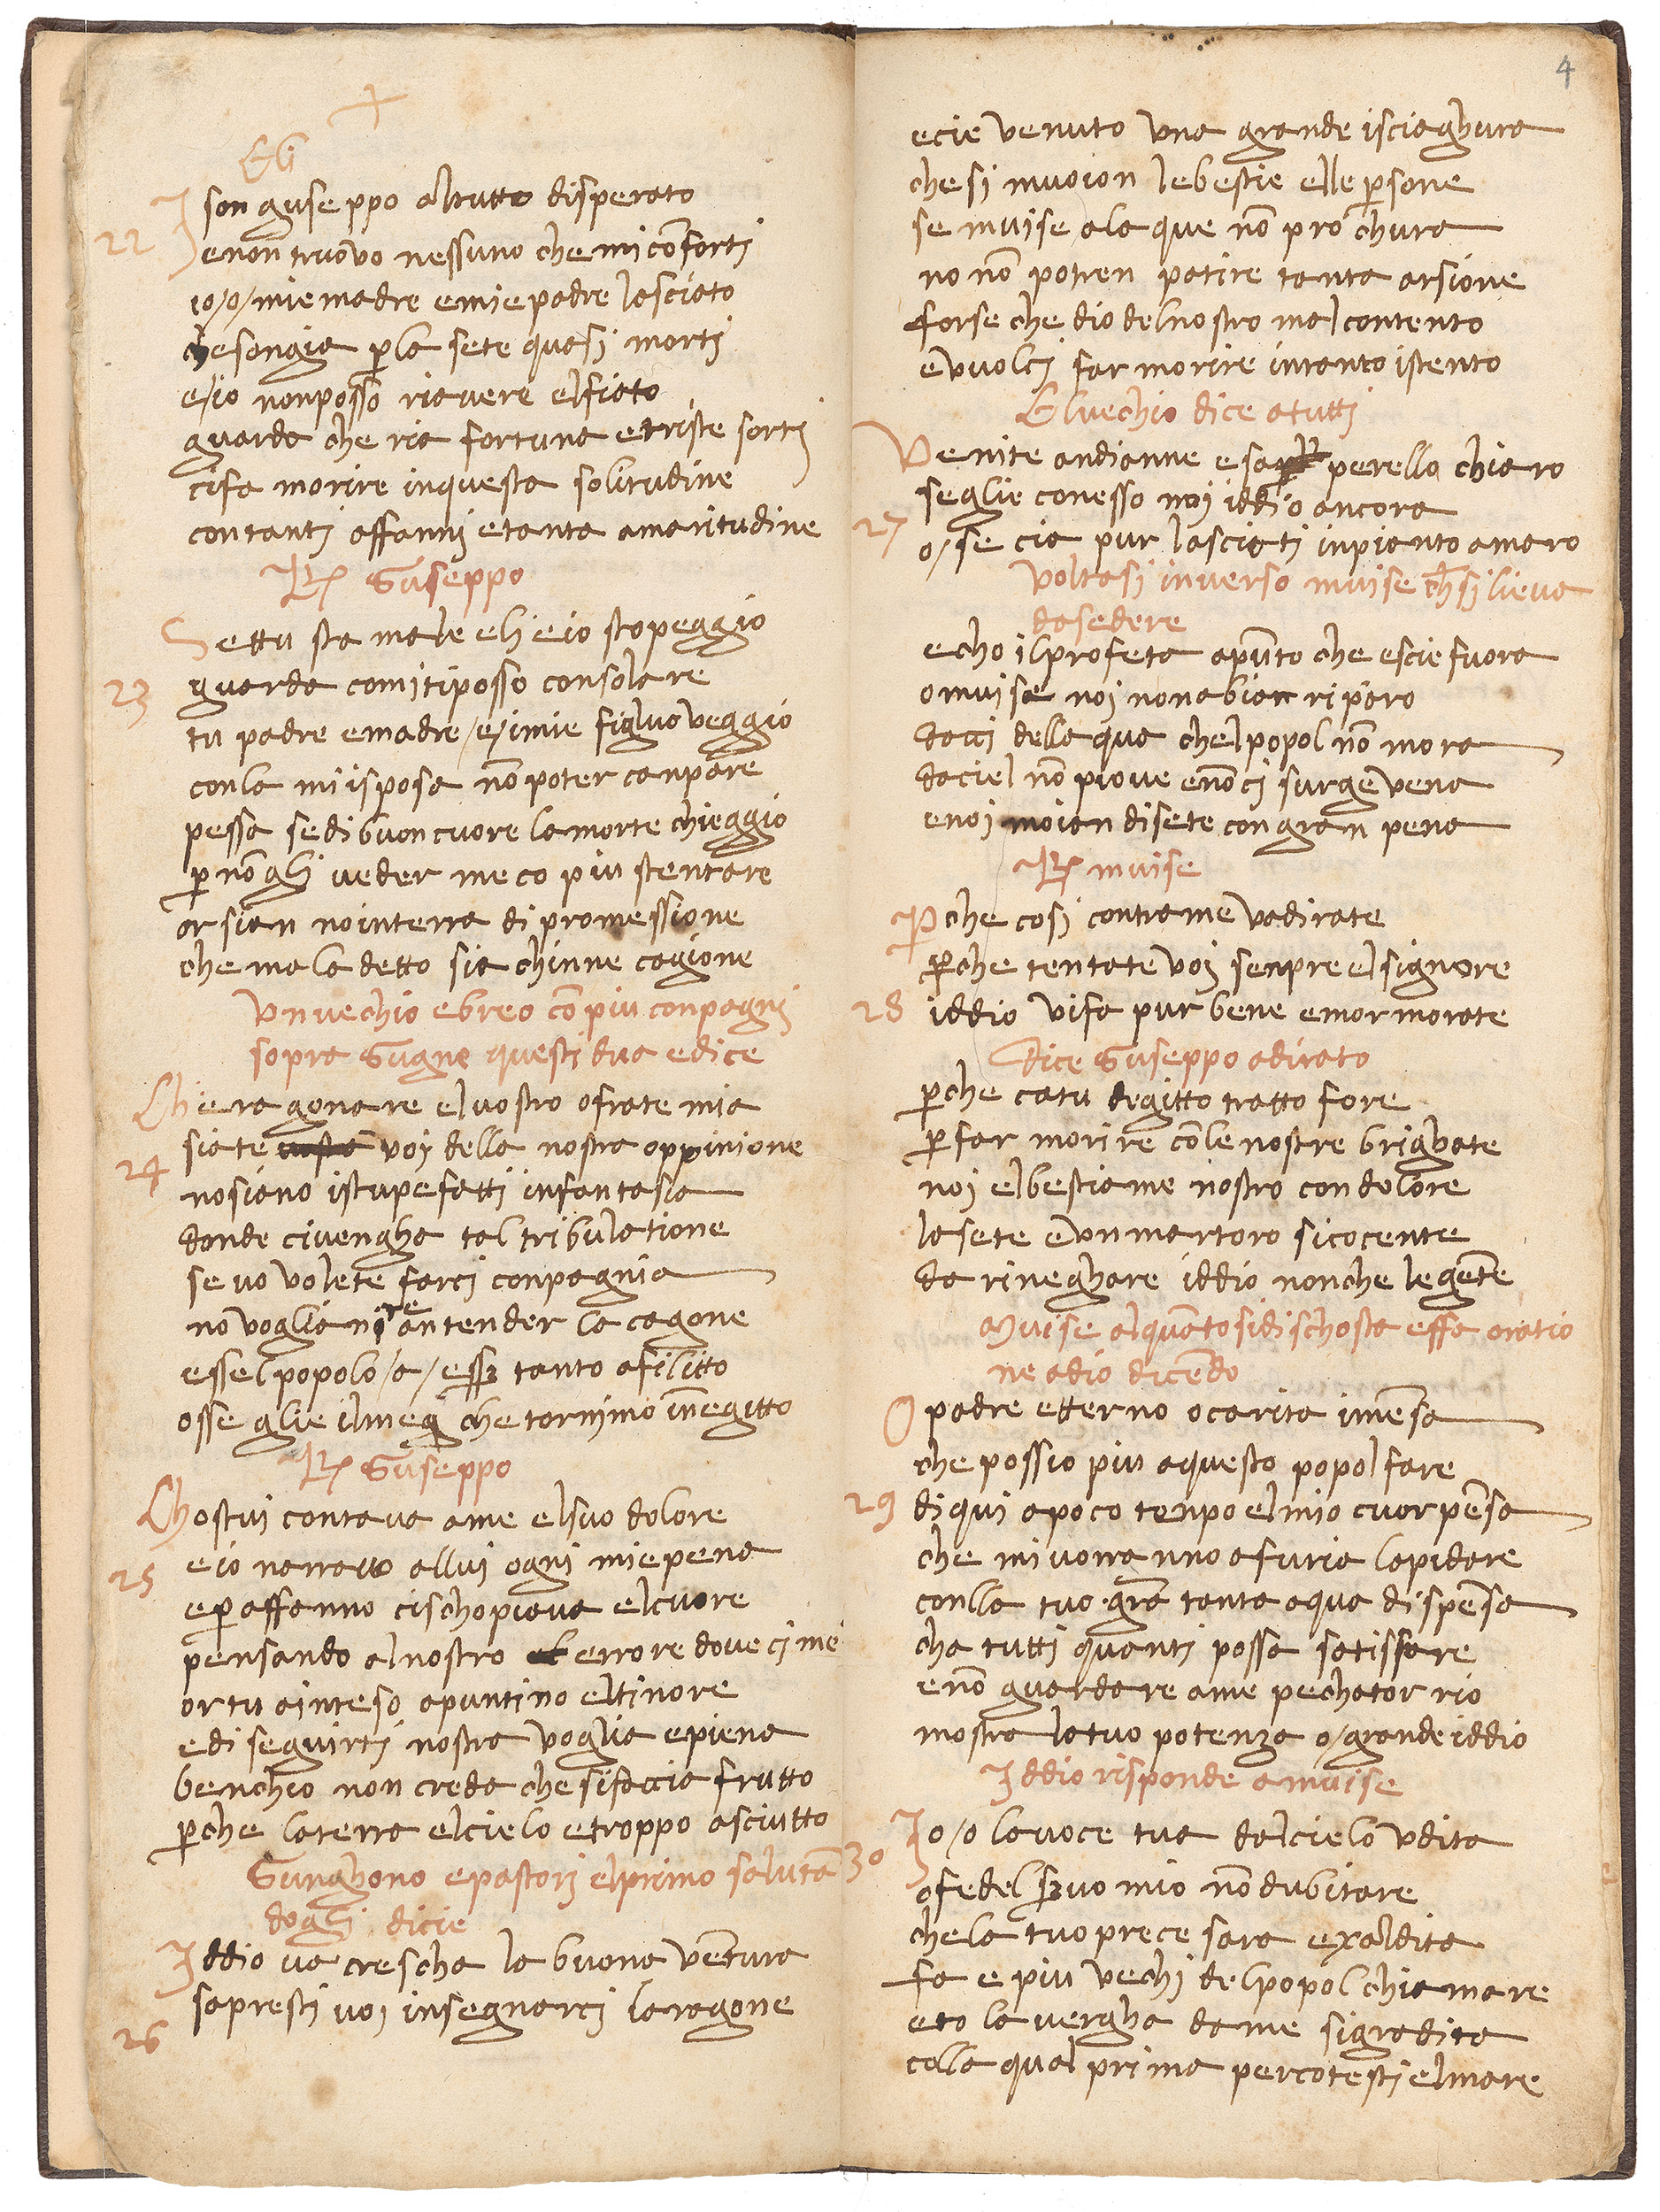 +
Eli
I son guseppo altutto disperato
22 enon truovo nessuno che mi cōforti
io/o/mie madre emie padre lasciato
che songia p̱ la sete quasi morti
e/io nonposso riavere elfiato
guarda che ria fortuna etriste sorti
cifa morire inquesta solitudine
contanti affanni etanta amaritudine
Ṟ Guseppo
Settu sta male eli eio stopeggio
23 guarda comitiposso consolare
tu padre emadre/e/imie figluo veggio
conla mi isposa nō poter canpare
pessa sedi buon cuore lamorte chieggio
p̱ nō gli veder meco piu stentare
or sian nointerra di promessione
che mala detto sia chinne cagione
Un vechio ebreo cō piu conpagni
sopra Gugne questi dua edice
Che ragonare elvostro ofrate mia
24 siate voi della nostra oppinione
nosiano istupefatti infantasia
donde civengha tal tribulatione
se vo volete farci conpagnia
no voglia nore antender la cagone
essel popolo/a/ess tanto afilitto
osse glie ilmeg che tornimo inegitto
Ṟ Guseppo
Chostui contava ame elsuo dolore
25 eio narravo allui ogni miepena
ep̱ affanno cischopiava elcuore
pensando alnostro errore dove ci me
or tu ainteso apuntino eltinore
edi seguirti nostra voglia epiena
benchio non creda che sifaccia frutto
p̱che laterra elcielo etroppo asciutto
Gunghono epastori elprimo salutā
dogli dicie
Iddio va crescha la buona vētura
26 sapresti voi insegnarci laragone
4
ecie venuto una grande isciaghura
che si muoion lebestie elle p̱sone
se muise ala que nō pro chura
no nō potren patire tanta arsione
forse che dio delnostro mal contento
evuolci far morire intanto istento
El vechio dice atutti
Venite andianne esa perello chiaro
seglie conesso noi iddio ancora
27 o/se cia pur lasciati inpianto amaro
voltasi inverso muise ch̄ si lieva
dasedere
echo ilprofeta apūto che escie fuora
omuise noi nonabian riparo
dacci dellaqua chelpopol nō mora
daciel nō piove enō ci surge vena
enoi moian disete con gran pena
Ṟ muise
P̱che cosi contrame vadirate
p̱che tentate voi senpre elsignore
28 iddio vifa pur bene emormorate
dice Guseppo adirato
p̱che catu degitto tratto fore
p̱ far morire cōle nostre brighate
noi elbestiame nostro condolore
lasete eun martoro sicocente
da rineghare iddio nonche legēte
Muise alquāto sidischosta effa oratio
ne adio dicēdo
O padre etterno ocarita imēsa
che possio piu aquesto popol fare
29 diqui apoco tenpo elmio cuor pēsa
che mivorranno afuria lapidare
conlla tuo grā tanta aqua dispēsa
cha tutti quanti possa satissare
enō guardare ame pechator rio
mostra latuo potenza o/grande iddio
Iddio risponde amuise
30 Io/o lavoce tua dalcielo udita
ofedel servo mio nō dubitare
chela tuo prece sara exaldita
fa epiu vechi delpopol chiamare
eto la vergha dame sigradita
colla qual prima percotesti elmare